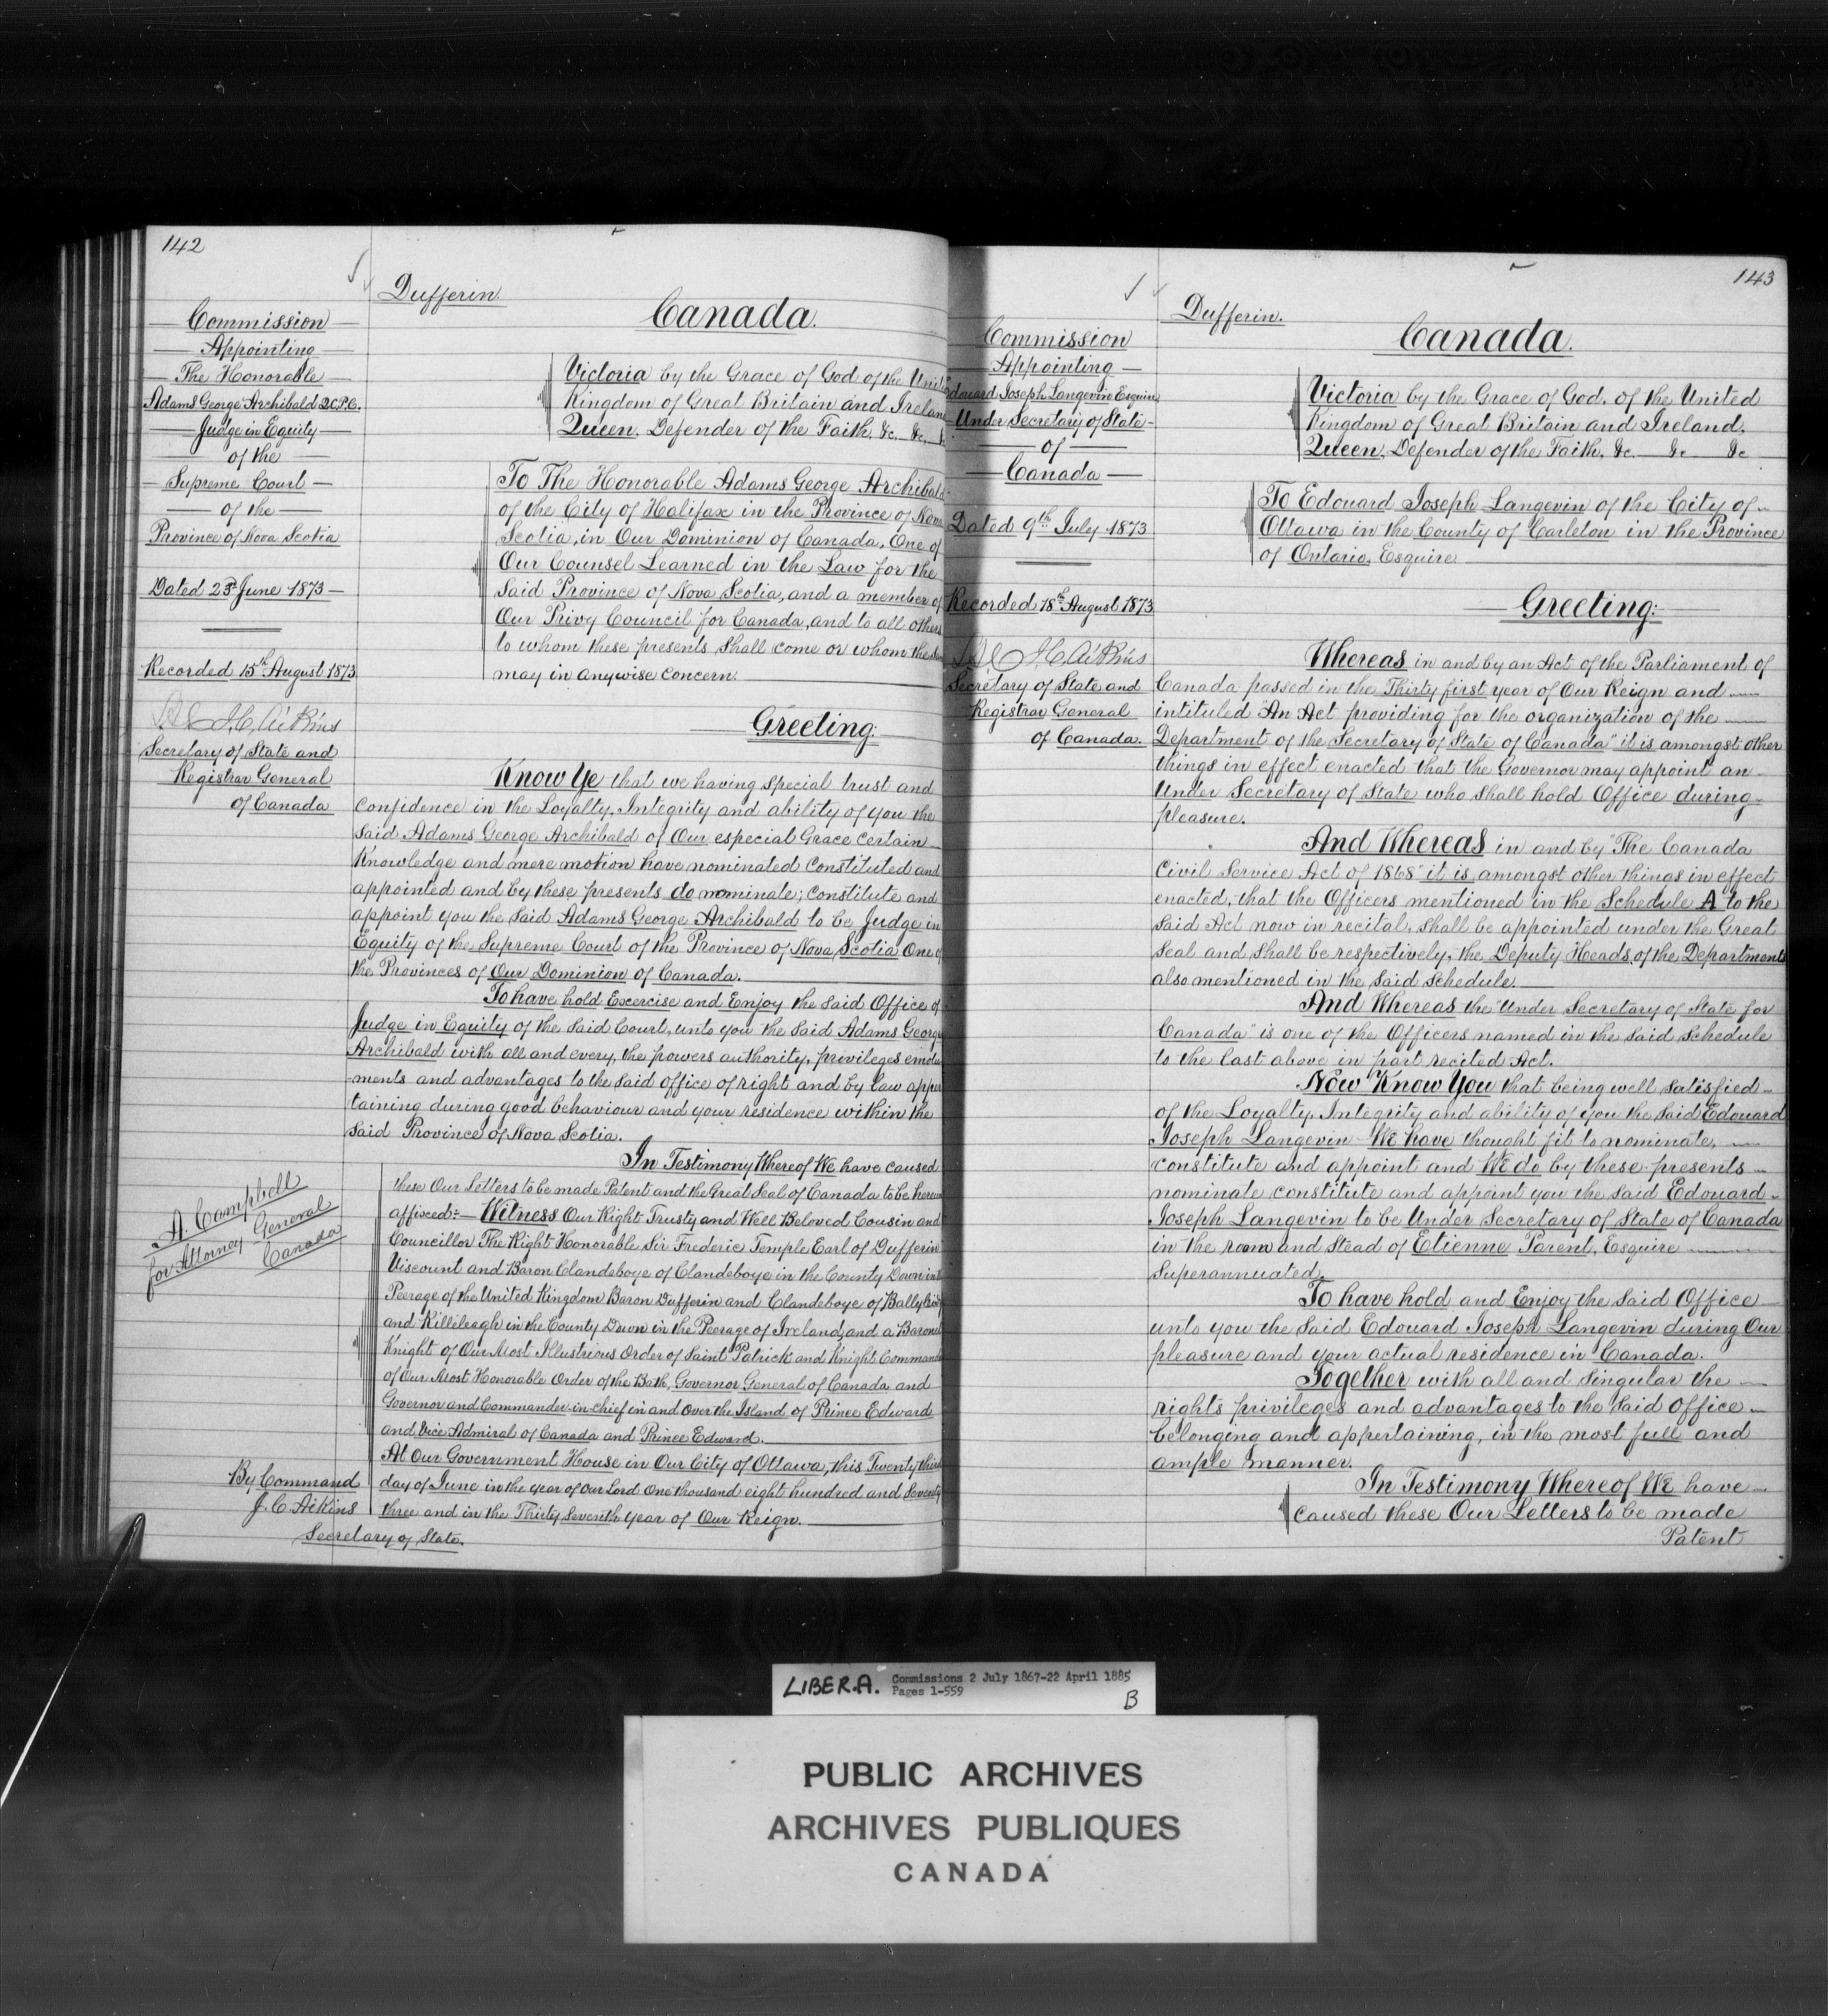 142
Commission
Appointing
The Honorable
Adams George Archibald Q.C.P.C.
Judge in Equity
of the
Supreme Court
of the
Province of Nova Scotia
Dated 23rd June 1873
Recorded 15th August 1873
J.C. Aikins
Secretary of State and
Registrar General
of Canada
A. Campbell
for Attorney General
Canada
By Command
J. C. Aikins
Secretary of State.
Dufferin.
Canada.
Victoria by the Grace of God of the
Kingdom of Great Britain and
Queen, Defender of the Faith, &c. &c.
To The Honorable Adams George Archibald
of the City of Halifax in the Province of Nova
Scotia, in Our Dominion of Canada, One of
Our Counsel Learned in the Law for the
Said Province of Nova Scotia, and a member of
Our Privy Council for Canada, and to all others
to whom these presents shall come or whom the
may in anywise concern.
Greeting:
Know Ye that we having special trust and
confidence in the Loyalty, Integrity and ability of you the
said Adams George Archibald of Our especial Grace certain
Knowledge and mere motion have nominated Constituted and
appointed and by these presents do nominate; constitute and
appoint you the said Adams George Archibald to be Judge in
Equity of the Supreme Court of the Province of Nova Scotia One of
the Provinces of Our Dominion of Canada.
To have hold Excercise and Enjoy the said Office of
Judge in Equity of the said Court, unto you the said Adams George
Archibald with all and every, the powers authority, privileges emolu
-ments and advantages to the said office of right and by law apper
taining during good behaviour and your residence within the
said Province of Nova Scotia.
In Testimony Whereof We have caused
these Our Letters to be made Patent and the Great Seal of Canada to be hereunto
affixed:- Witness Our Right Trusty and Well Beloved Cousin and
Councillor The Right Honorable Sir Frederic Temple Earl of Dufferin
Viscount and Baron Clandeboye of Clandeboye in the County Down in the
Peerage of the United Kingdom Baron Dufferin and Clandeboye of
and Killeleagh in the County Down in the Peerage of Ireland, and a Baronet
Knight of Our Most Illustrious Order of Saint Patrick and Knight Commander
of Our Most Honorable Order of the Bath, Governor General of Canada and
Governor and Commander-in-chief in and over the Island of Prince Edward
and Vice Admiral of Canada and Prince Edward.
At Our Government House in Our City of Ottawa, this Twenty third
day of June in the year of our Lord One thousand eight hundred and Seventy
three and in the Thirty Seventh year of Our Reign.
143
Commission
Appointing
Edouard Joseph Langevin Esquire
Under Secretary of State
of
Canada
Dated 9th July 1873
Recorded 18th August 1873
J.C. Aikins
Secretary of State and
Registrar General
of Canada.
Dufferin.
Canada.
Victoria by the Grace of God, of the United
Kingdom of Great Britain and Ireland,
Queen, Defender of the Faith, &c. &c &c
To Edouard Joseph Langevin of the City of
Ottawa in the County of Carleton in the Province
of Ontario, Esquire
Greeting:
Whereas in and by an Act of the Parliament of
Canada passed in the Thirty first year of Our Reign and
intituled "An Act providing for the organization of the
Department of the Secretary of State of Canada" it is amongst other
things in effect enacted that the Governor may appoint an
Under Secretary of State who shall hold Office during
pleasure.
And Whereas in and by "The Canada
Civil Service Act of 1868" it is, amongst other things in effect
enacted, that the Officers mentioned in the Schedule A to the
said Act now in recital, shall be appointed under the Great
Seal and shall be respectively, the Deputy Heads, of the Departments
also mentioned in the said Schedule.
And Whereas the "Under Secretary of State for
Canada" is one of the Officers named in the said Schedule
to the last above in part recited Act.
Now Know You that being well satisfied
of the Loyalty, Integrity and ability of you the said Edouard
Joseph Langevin We have thought fit to nominate,
constitute and appoint and We do by these presents
nominate constitute and appoint you the said Edouard
Joseph Langevin to be Under Secretary of State of Canada
in the room and stead of Etienne Parent, Esquire
superannuated.
To have hold and Enjoy the said Office
unto you the said Edouard Joseph Langevin during Our
pleasure and your actual residence in Canada.
Together with all and singular the
rights privileges and advantages to the said office
belonging and appertaining, in the most full and
ample manner.
In Testimony Whereof We have
caused these Our Letters to be made
Patent
LIBER.A. Commissions 2 July 1867-22 April 1885
Pages 1-559
B
PUBLIC ARCHIVES
ARCHIVES PUBLIQUES
CANADA